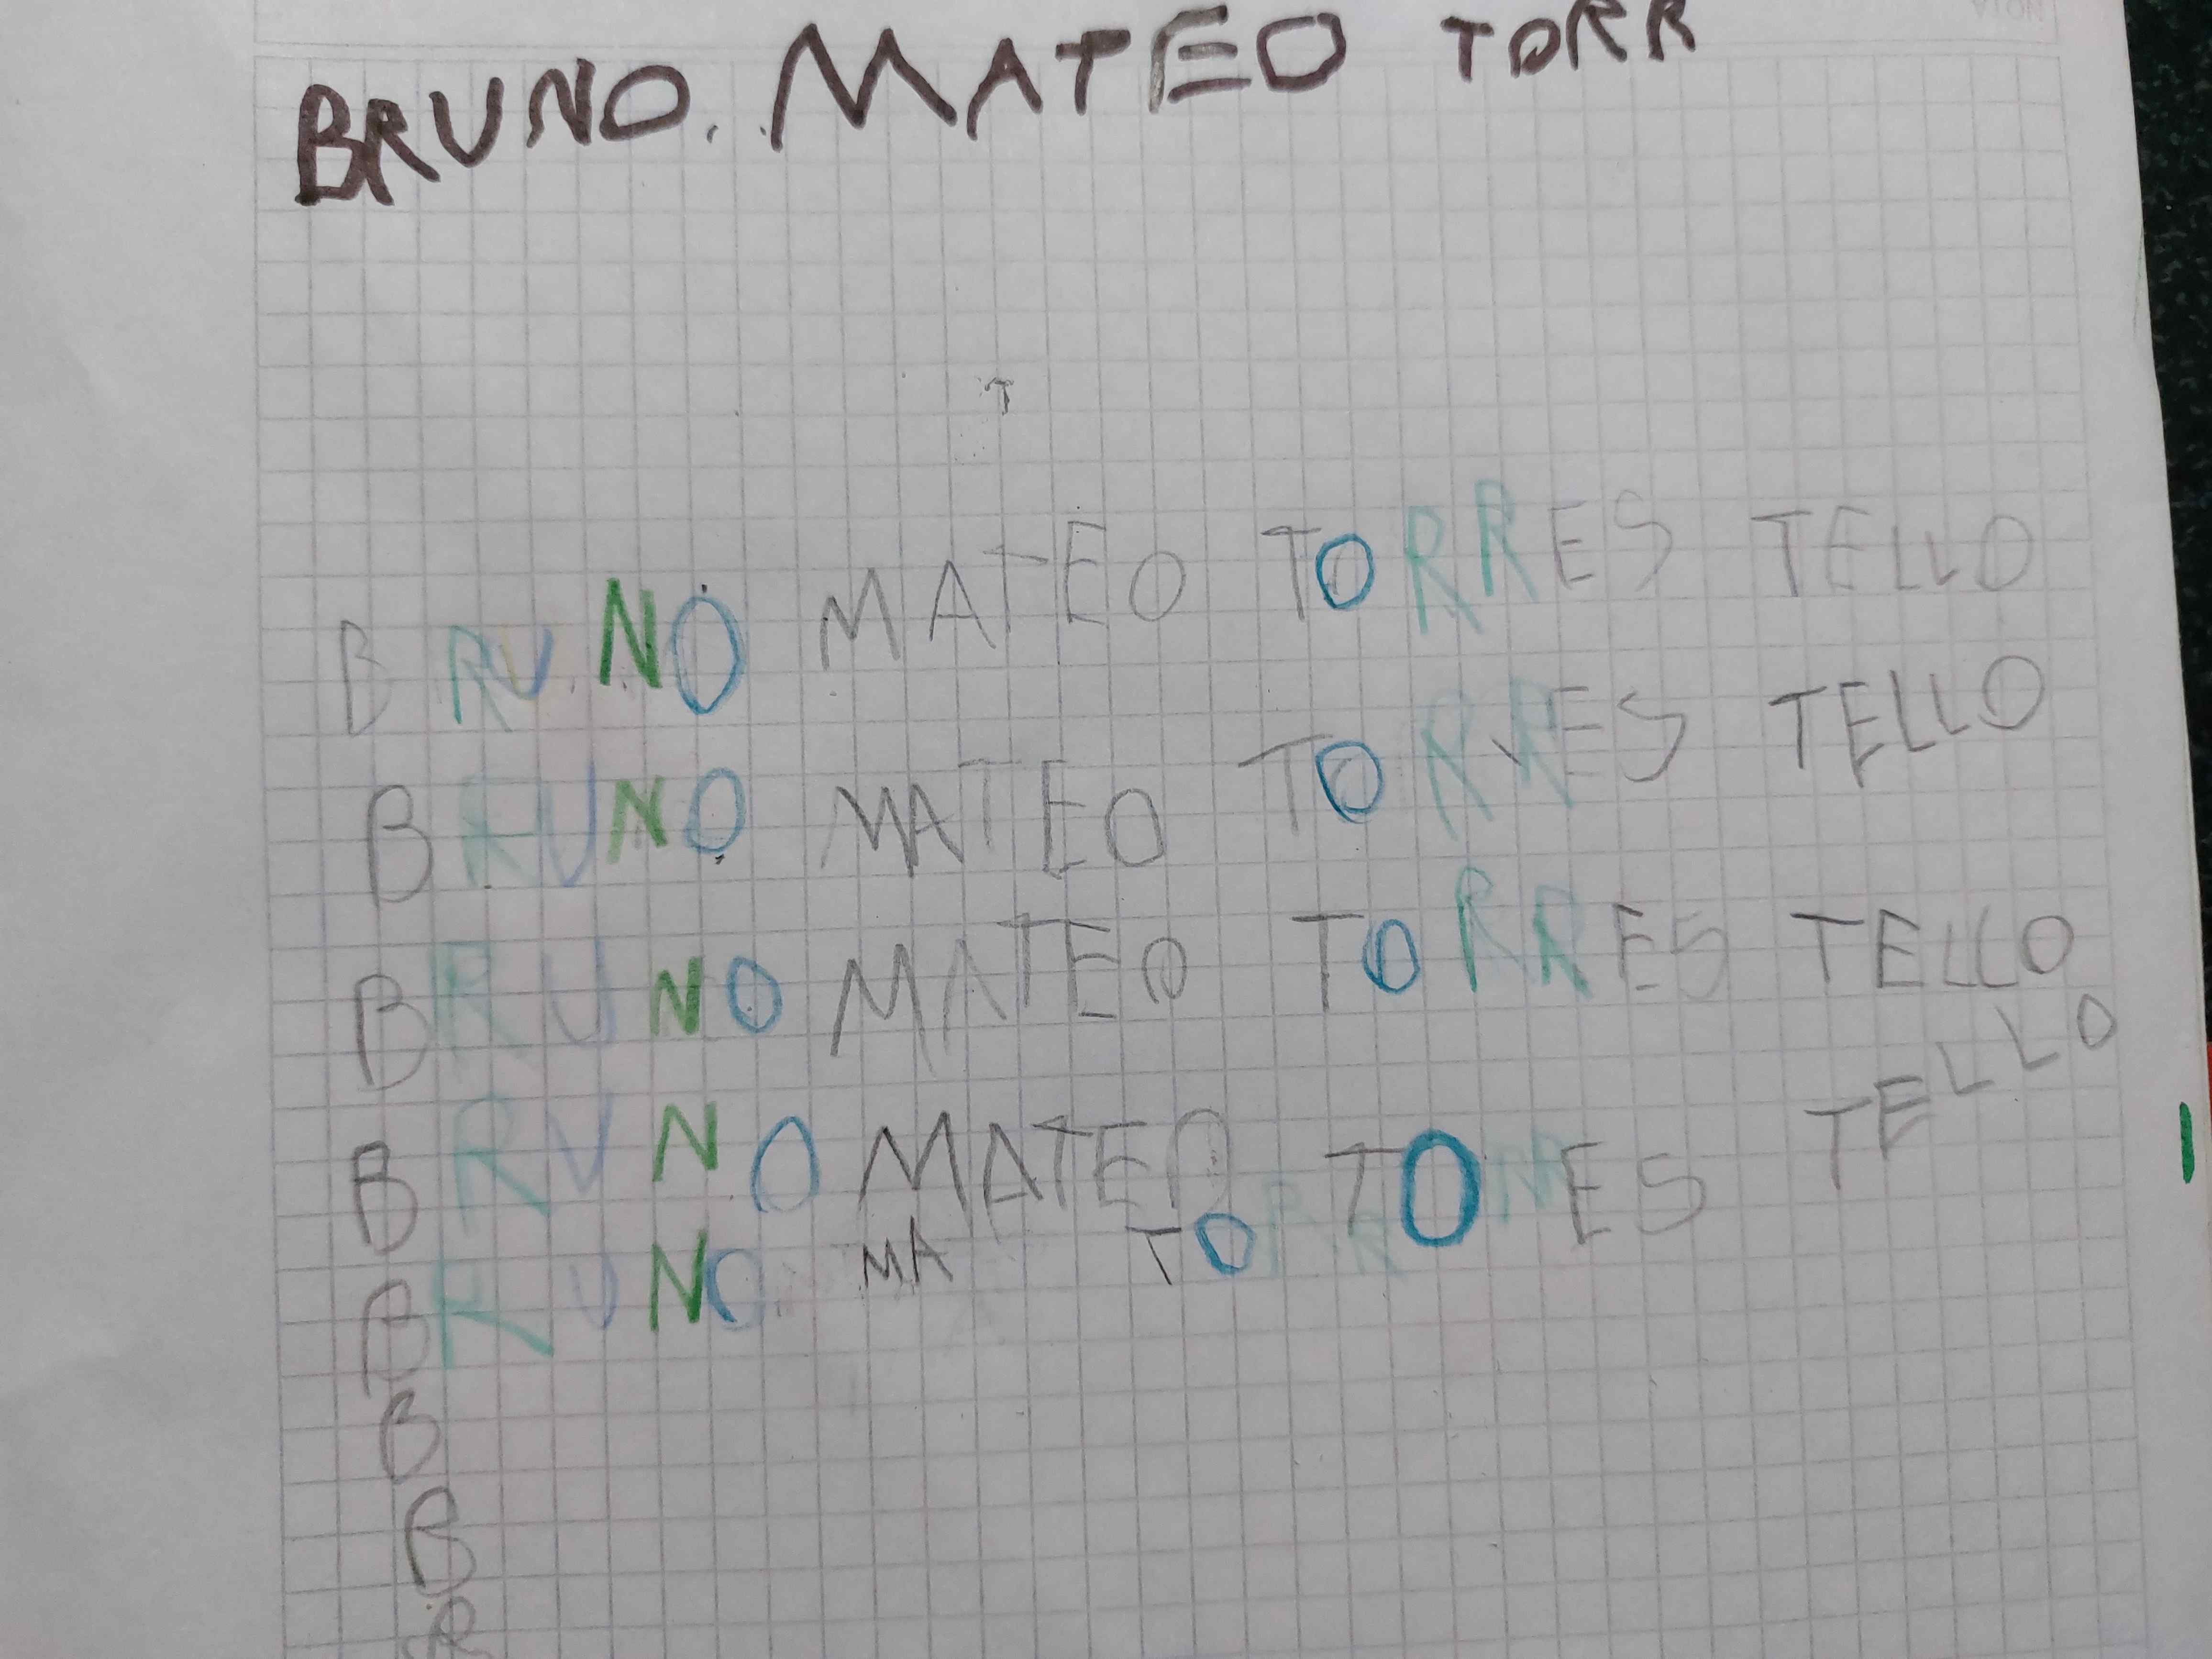 BRUNO. MATEO TORR
T
BRUNO MATEO TORRES TELLO
BRUNO MATEO TORRES TELLO
BRUNO MATEO TORRES TELLO
BRUNO MATEO TORRES TELLO
BRUNO MA TORR
B
B